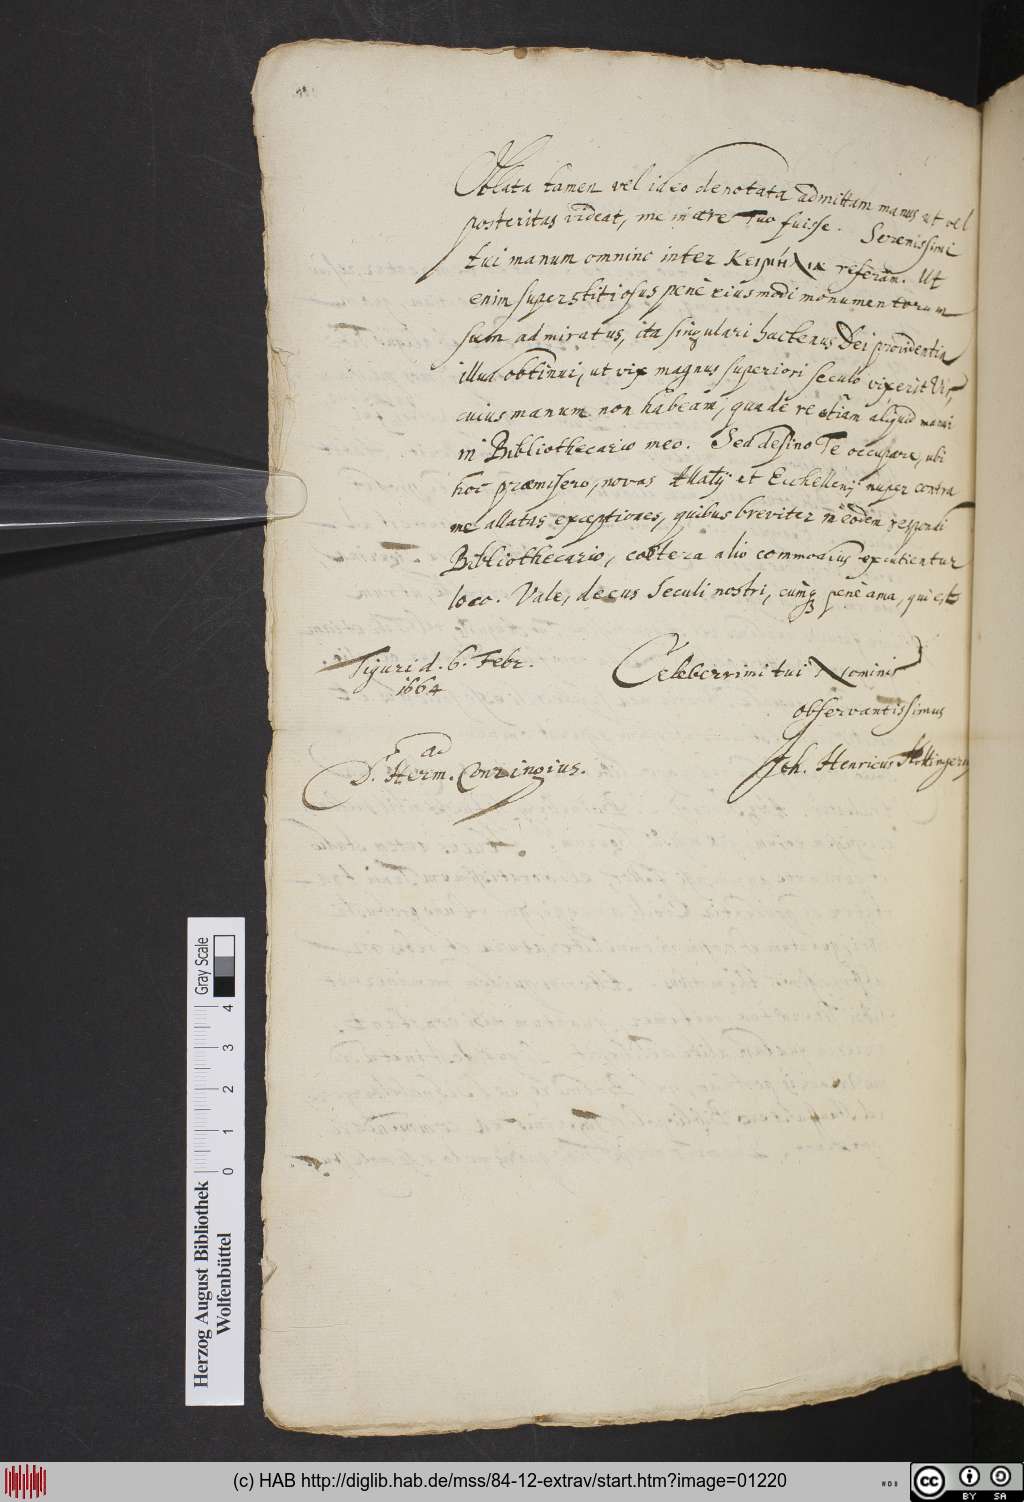 Oblata tamen vel ideo denotata admittam manus ut vel
posteritas videat, me in aere Tuo fuisse. Serenissimi
tui manum omnino inter Κειμήλια referam. Ut
enim superstitiosus penè eiusmodi monumentorum
sum admiratus, ita singulari hactenus Dei providentia
illud obtinui, ut vix magnus superiori seculo vixerit Vir,
cuius manum non habeam, qua de re etiam aliquid monui
in Bibliothecario meo. Sed desino Te occupare, ubi
hoc praemisero, novas Allatij et Ecchellensij nuper contra
me allatas exceptiones, quibus breviter in eodem respondi
Bibliothecario, coetera alio commodius excutientur
loco. Vale, decus Seculi nostri, eumq penè ama, qui est
Tiguri d. 6. Febr.
1664
Celeberrimi tui Nominis
observantissimus
Joh. Henricus Hottingerus
ad
D. Herm. Conringius.
Herzog August Bibliothek
Wolfenbüttel
0 1 2 3 4
Gray Scale
(c) HAB http://diglib.hab.de/mss/84-12-extrav/start.htm?image=01220
cc BY SA